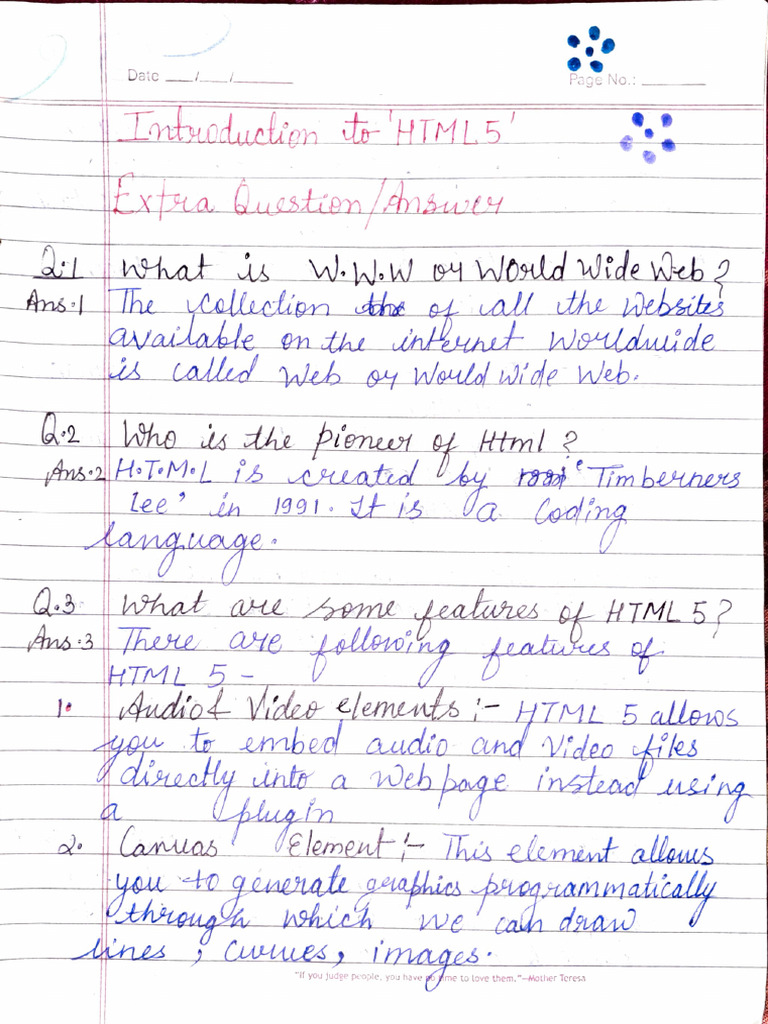 Date ___/___/______
Page No.: ______
Introduction to 'HTML5'
Extra Question/Answer
Q.1 What is W.W.W or World Wide Web?
Ans.1 The collection of all the websites
available on the internet worldwide
is called Web or World Wide Web.
Q.2 Who is the pioneer of Html?
Ans.2 H.T.M.L is created by 'Timberners
Lee' in 1991. It is a Coding
language.
Q.3 What are some features of HTML 5?
Ans.3 There are following features of
HTML 5 -
1. Audio & Video elements :- HTML 5 allows
you to embed audio and video files
directly into a web page instead using
a plugin
2. Canvas Element :- This element allows
you to generate graphics programmatically
through which we can draw
lines, curves, images.
"If you judge people, you have no time to love them."—Mother Teresa